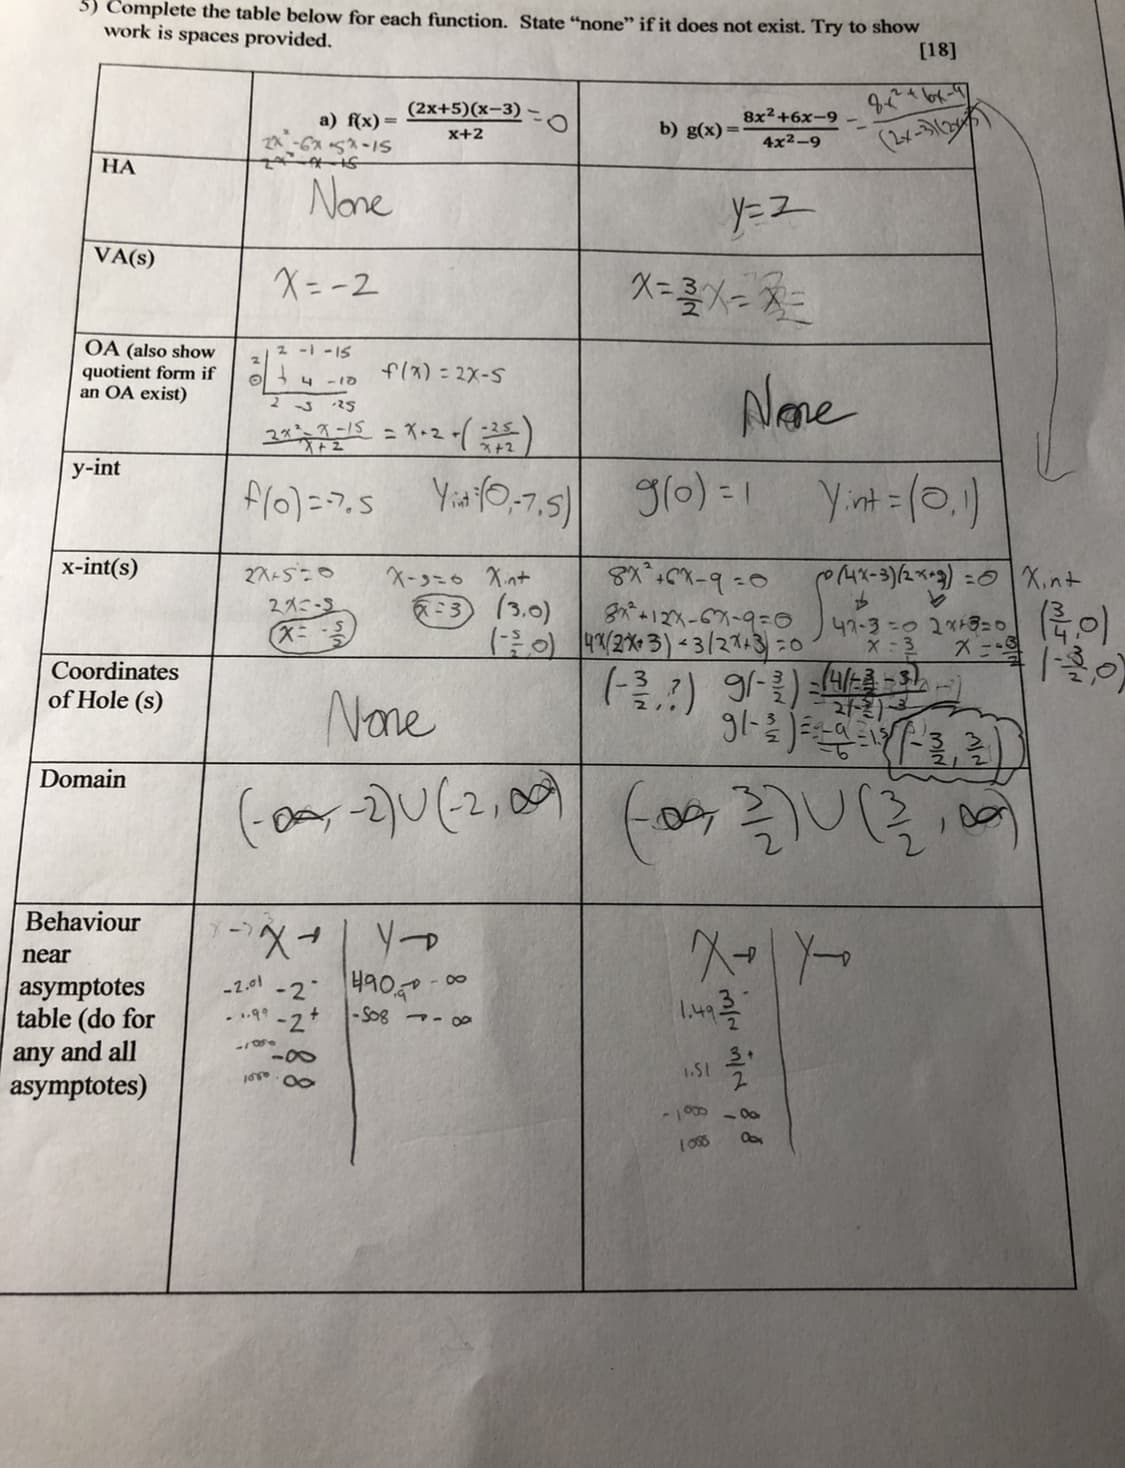 5) Complete the table below for each function. State “none” if it does not exist. Try to show
work is spaces provided.
[18]
a) f(x) = (2x+5)(x−3) / x+2 = 0
2x² -6x +5x -15
2x² - x -15
b) g(x) = 8x²+6x−9 / 4x²−9 =
HA
None
y=2
VA(s)
x = -2
x = 3/2
OA (also show
quotient form if
an OA exist)
2 -1 -15
4 -10
f(x) = 2x-5
2x² - x -15 / x+2 = x+2 + (-25 / x+2)
None
y-int
f(0) = -7.5 Yint:(0,-7.5)
g(0) = 1 Yint = (0,1)
x-int(s)
2x+5=0 x-3=0 Xint
x=3 (3,0)
x= -5/2 (-5/2, 0)
8x²+6x-9 =0 (4x-3)(2x+3) =0 Xint
8x²+12x-6x-9=0 4x-3=0 2x+3=0 (3/4, 0)
4x(2x+3) -3(2x+3) =0 (-3/2, 0)
Coordinates
of Hole (s)
None
(-3/2, ?) g(-3/2) =
g(-3/2) = -9/-6 = 1.5 (-3/2, 3/2)
Domain
(-∞, -2)∪(-2, ∞)
(-∞, 3/2)∪(3/2, ∞)
Behaviour
near
asymptotes
table (do for
any and all
asymptotes)
X→ Y→
-2.01 -2⁻ → -∞
-1.99 -2⁺ -508 → -∞
-1000 -∞
1000 ∞
X→ Y→
1.49 3/2⁻
1.51 3/2⁺
-1000 -∞
1000 ∞